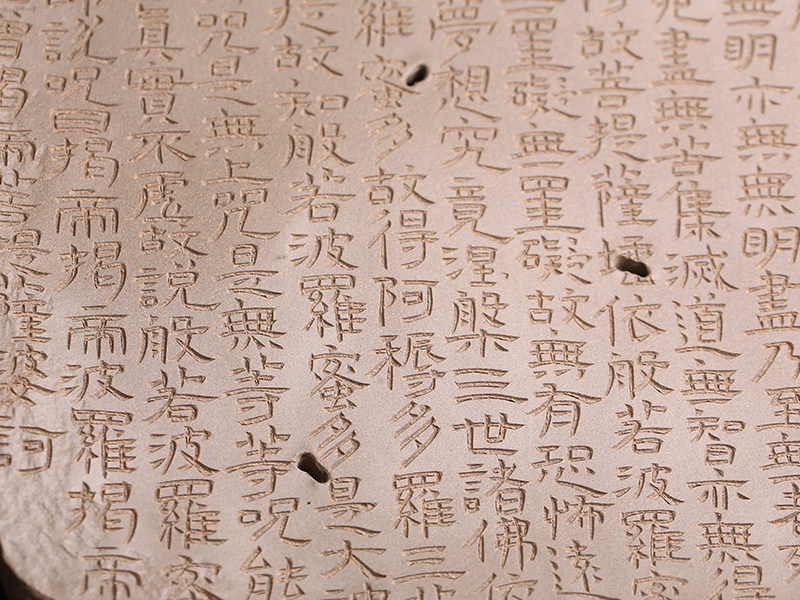 無明亦無無明盡乃至無老
死盡無苦集滅道無智亦無
故菩提薩埵依般若波羅蜜
無罣礙無罣礙故無有恐怖遠
夢想究竟涅槃三世諸佛依
羅蜜多故得阿耨多羅三藐
提故知般若波羅蜜多是大神
咒是無上咒是無等等咒能
真實不虛故說般若波羅蜜
說咒曰揭帝揭帝波羅揭帝
僧揭帝菩提薩婆訶